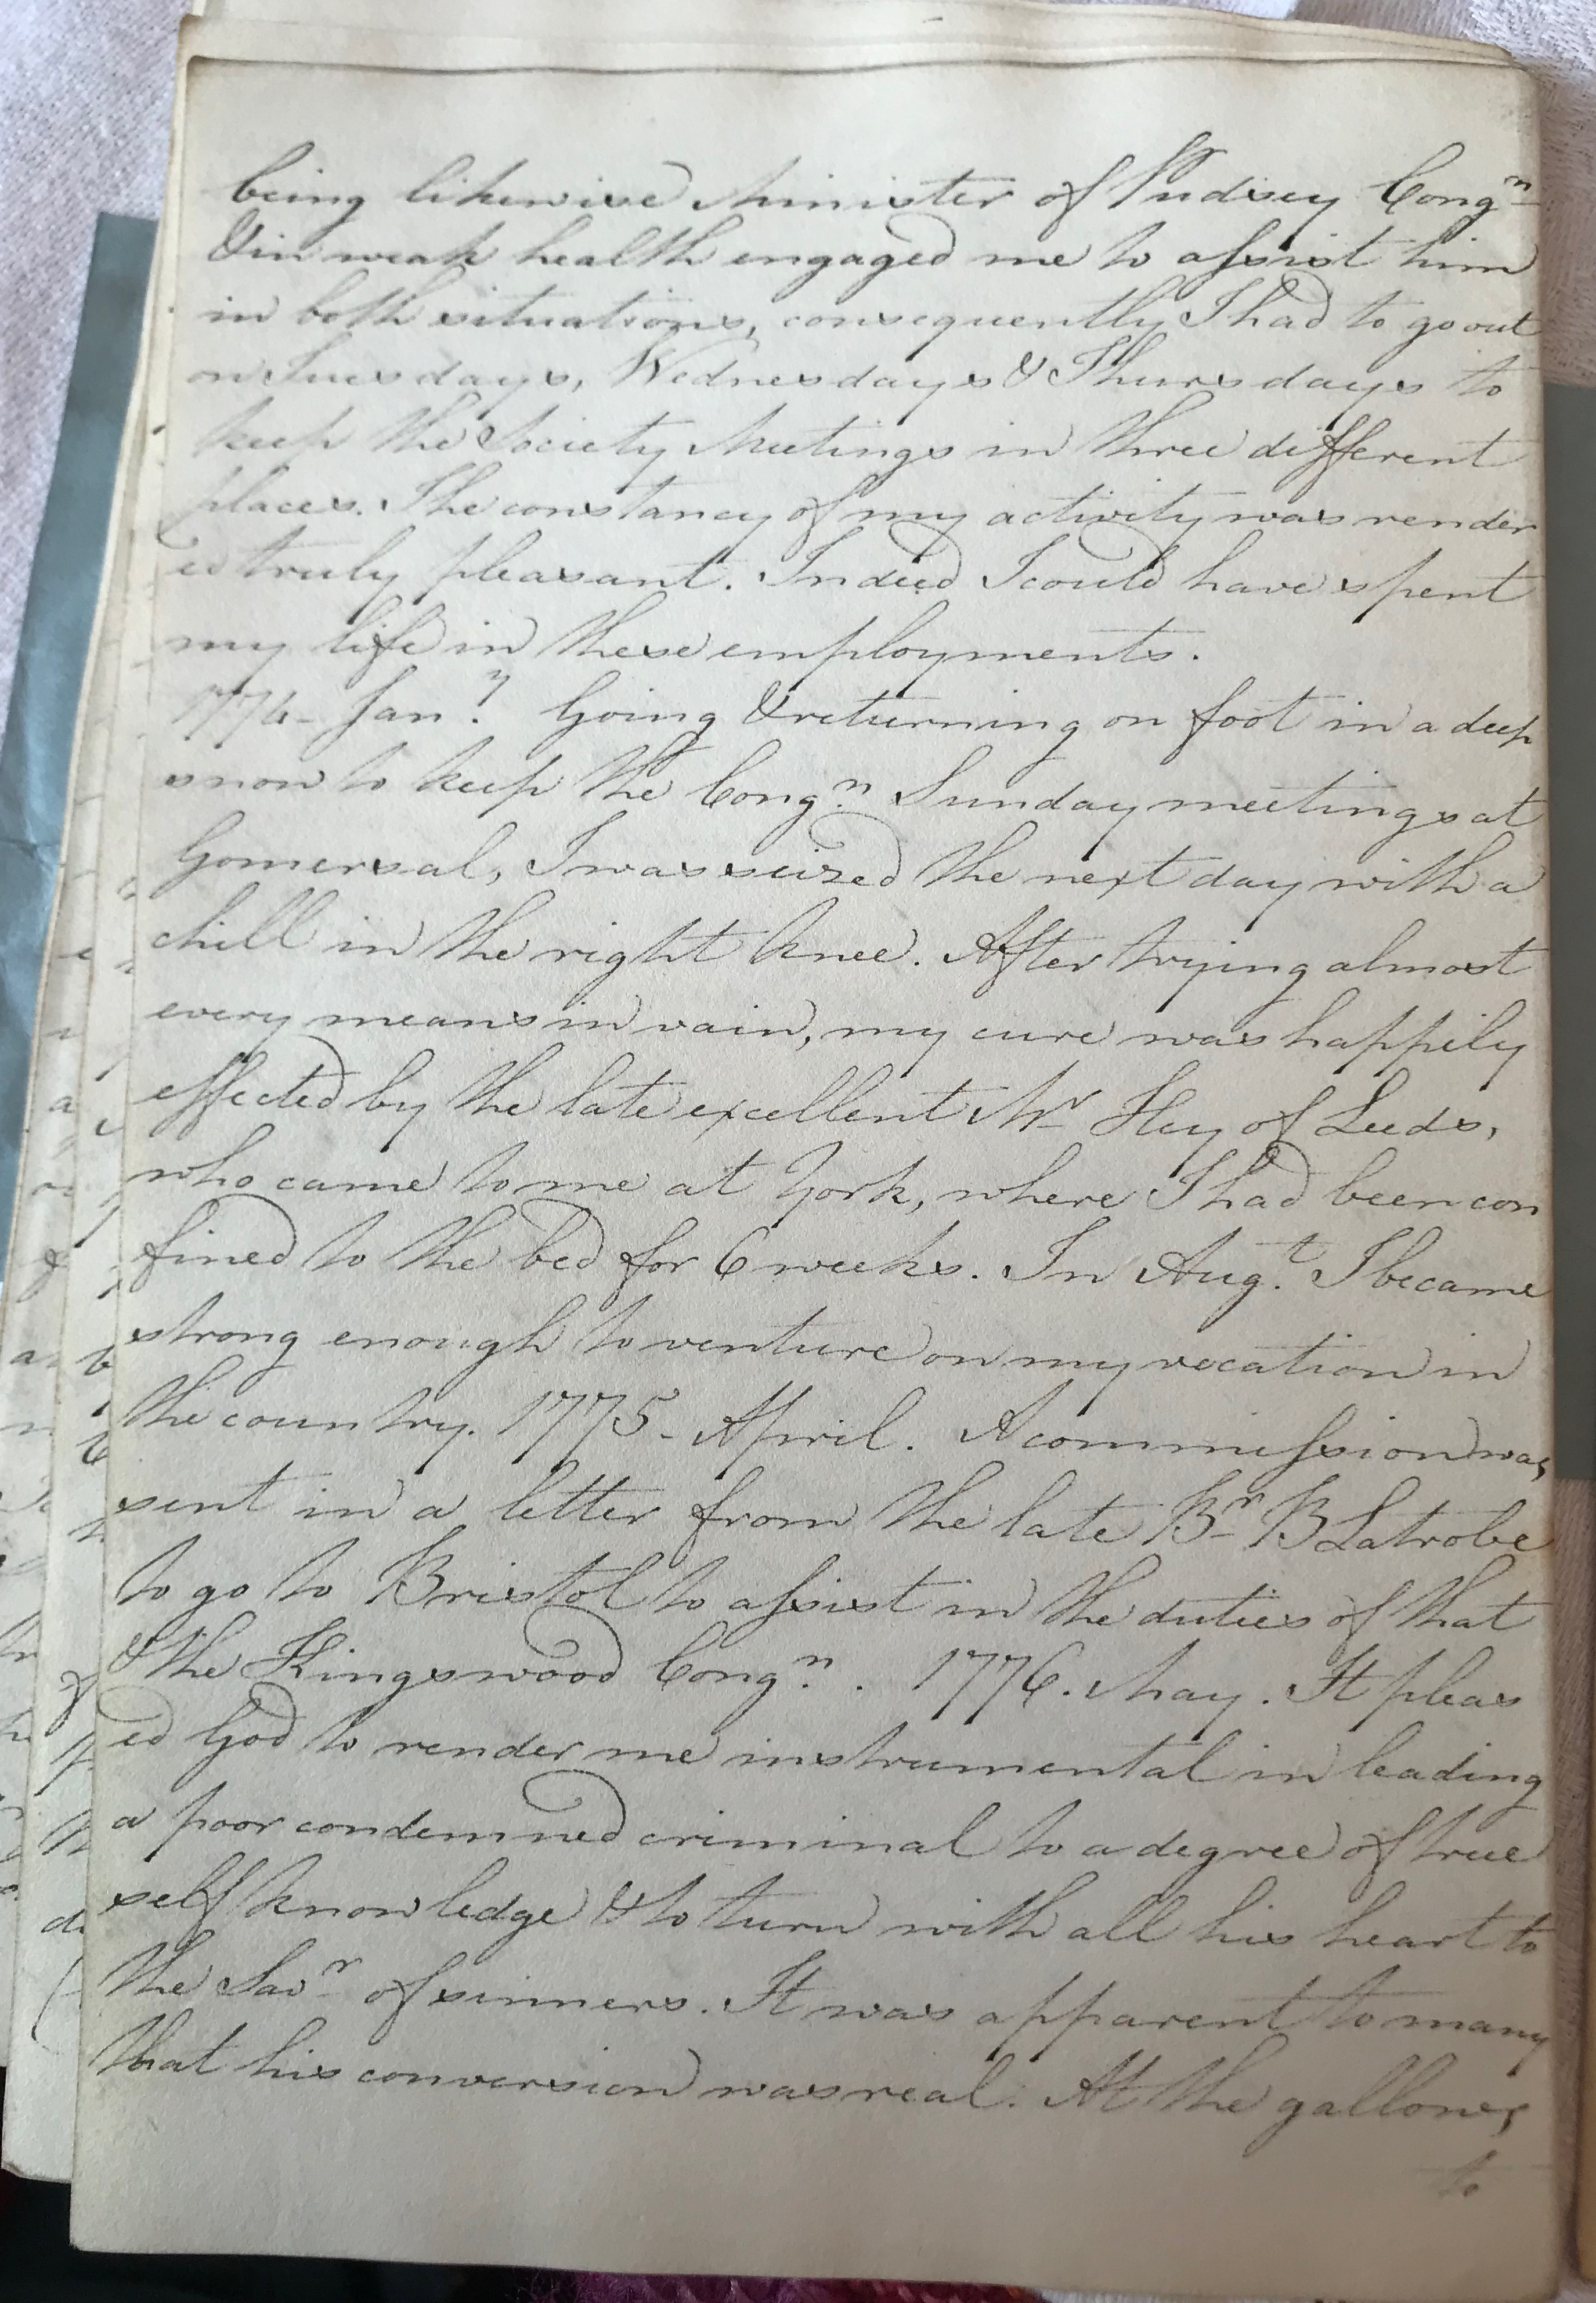 being likewise Minister of Pudsey Congn
& in weak health engaged me to assist him
in both situations, consequently I had to go out
on Tuesdays, Wednesdays & Thursdays to
keep the Society Meetings in three different
places. The constancy of my activity was render
ed truly pleasant. Indeed I could have spent
my life in these employments.
1774 - Jany. Going & returning on foot in a deep
snow to keep the Congn. Sunday meetings at
Gomersal, I was seized the next day with a
chill in the right knee. After trying almost
every means in vain, my cure was happily
effected by the late excellent Mr Hey of Leeds,
who came to me at York, where I had been con
fined to the bed for 6 weeks. In Augt. I became
strong enough to venture on my vocation in
the country. 1775 - April. A commission was
sent in a letter from the late Br B Latrobe
to go to Bristol to assist in the duties of that
& the Kingswood Congn. . 1776. May. It pleas
ed God to render me instrumental in leading
a poor condemned criminal to a degree of true
self knowledge & to turn with all his heart to
the Savr of sinners. It was apparent to many
that his conversion was real. At the gallows
to